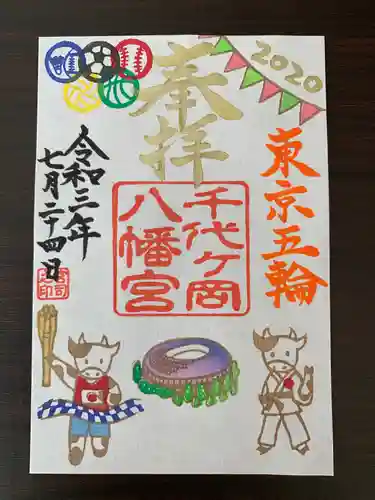 奉拝
2020
東京五輪
千代ヶ岡
八幡宮
令和三年
七月二十四日
宮司
之印